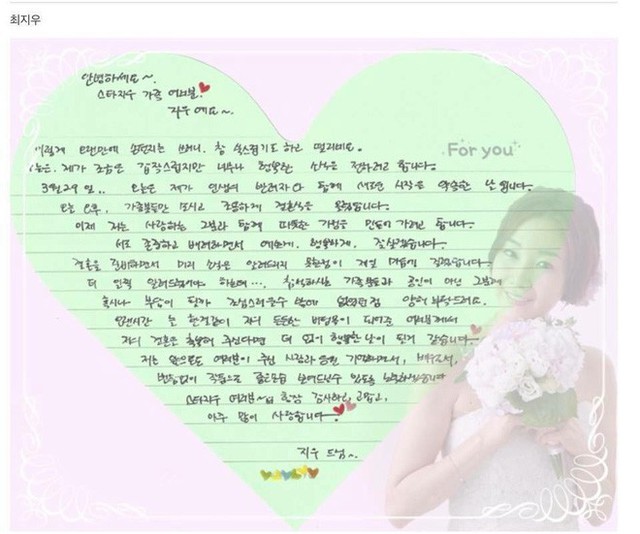 최지우
안녕하세요~.
스타지우 가족 여러분.
지우예요~.
이렇게 오랜만에 손편지를 쓰려니, 참 쑥스럽기도 하고 떨리네요.
오늘은, 제가 조금은 갑작스럽지만 너무나 행복한 소식을 전하려고 합니다.
For you
3월 29일.. 오늘은 제가 인생의 반려자와 함께 새로운 시작을 약속한 날입니다.
오늘 오후, 가족분들만 모시고 조용하게 결혼식을 올렸습니다.
이제 저는 사랑하는 그분과 함께 따뜻한 가정을 만들어 가려고 합니다.
서로 존중하고 배려하면서 예쁘게, 행복하게, 잘 살겠습니다.
결혼을 준비하면서 미리 소식을 알려드리지 못한 점이 제일 마음에 걸렸습니다.
더 일찍 알려드렸어야 하는데..., 참석하시는 가족분들과 공인이 아닌 그분께
혹시나 부담이 될까 조심스러울 수 밖에 없었던 점 양해 부탁드려요.
오랜시간 늘 한결같이 저의 든든한 버팀목이 되어준 여러분께서
저의 결혼을 축복해 주신다면 더 없이 행복한 날이 될거 같습니다.
저는 앞으로도 여러분이 주신 사랑과 응원 기억하면서, 배우로서,
변함없이 작품으로 좋은모습 보여드릴수 있도록 노력하겠습니다
스타지우 여러분~ 항상 감사하고, 고맙고,
아주 많이 사랑합니다.
지우 드림~.